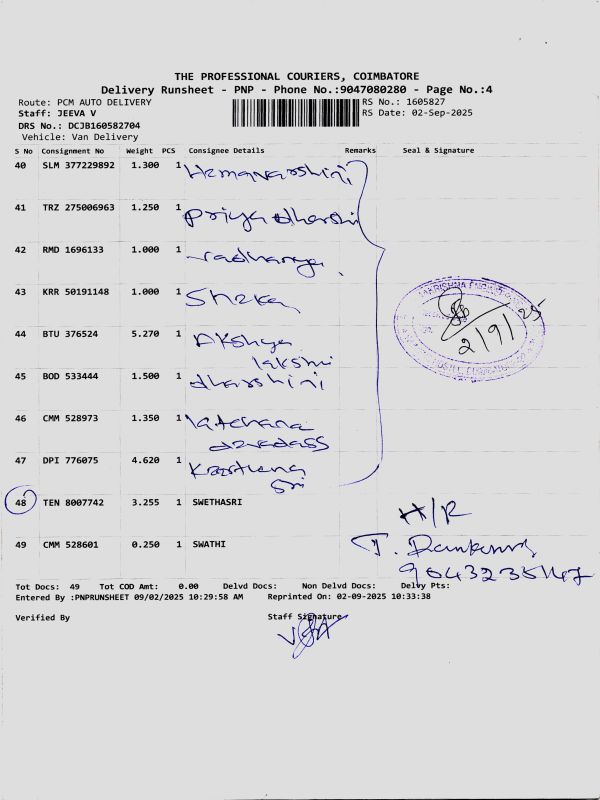 THE PROFESSIONAL COURIERS, COIMBATORE
Delivery Runsheet - PNP - Phone No.:9047080280 - Page No.:4
Route: PCM AUTO DELIVERY RS No.: 1605827
Staff: JEEVA V RS Date: 02-Sep-2025
DRS No.: DCJB160582704
Vehicle: Van Delivery
S No Consignment No Weight PCS Consignee Details Remarks Seal & Signature
40 SLM 377229892 1.300 1
41 TRZ 275006963 1.250 1 Priyadharshi
42 RMD 1696133 1.000 1
43 KRR 50191148 1.000 1
44 BTU 376524 5.270 1 Akshya
lakshmi
45 BOD 533444 1.500 1 dharshini
46 CMM 528973 1.350 1
47 DPI 776075 4.620 1
Sri
2/9/25
48 TEN 8007742 3.255 1 SWETHASRI
H/R
49 CMM 528601 0.250 1 SWATHI
Tot Docs: 49 Tot COD Amt: 0.00 Delvd Docs: Non Delvd Docs: Delvy Pts:
Entered By :PNPRUNSHEET 09/02/2025 10:29:58 AM Reprinted On: 02-09-2025 10:33:38
Verified By Staff Signature